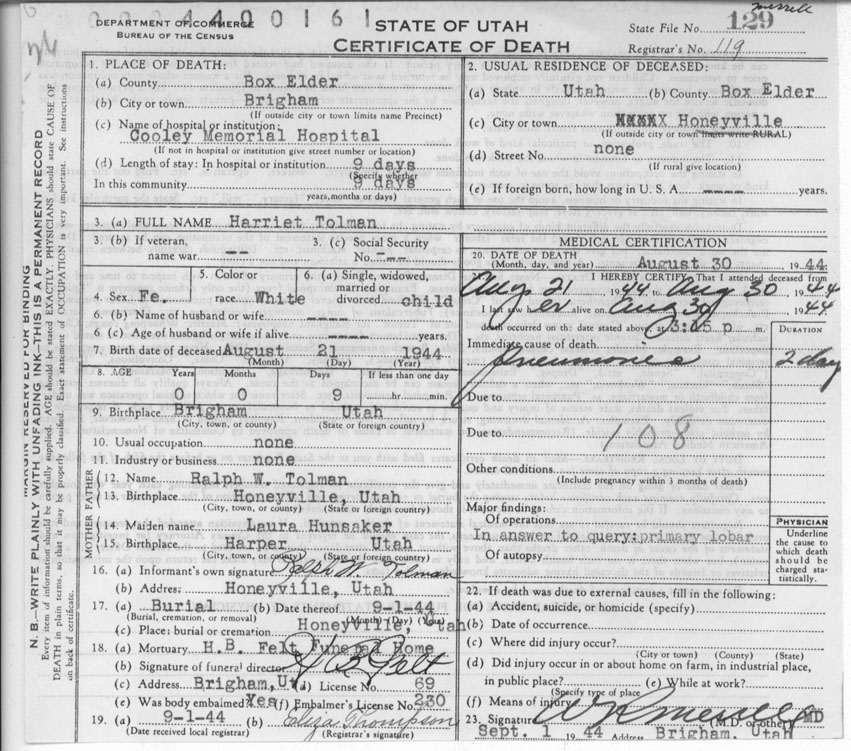 4400161
DEPARTMENT OF COMMERCE
BUREAU OF THE CENSUS
STATE OF UTAH
CERTIFICATE OF DEATH
Merrell
State File No. 129
Registrar's No. 119
MARGIN RESERVED FOR BINDING
N. B.—WRITE PLAINLY WITH UNFADING INK—THIS IS A PERMANENT RECORD
Every item of information should be carefully supplied. AGE should be stated EXACTLY. PHYSICIANS should state CAUSE OF
DEATH in plain terms, so that it may be properly classified. Exact statement of OCCUPATION is very important. See instructions
on back of certificate.
1. PLACE OF DEATH:
(a) County Box Elder
(b) City or town Brigham
(If outside city or town limits name Precinct)
(c) Name of hospital or institution:
Cooley Memorial Hospital
(If not in hospital or institution give street number or location)
(d) Length of stay: In hospital or institution 9 days
(Specify whether
In this community 9 days
years, months or days)
2. USUAL RESIDENCE OF DECEASED:
(a) State Utah (b) County Box Elder
(c) City or town XXXXX Honeyville
(If outside city or town limits write RURAL)
(d) Street No. none
(If rural give location)
(e) If foreign born, how long in U. S. A. ---- years.
3. (a) FULL NAME Harriet Tolman
3. (b) If veteran, name war -- 3. (c) Social Security No. ---
4. Sex Fe. 5. Color or race White 6. (a) Single, widowed, married or divorced child
6. (b) Name of husband or wife ----
6 (c) Age of husband or wife if alive ---- years.
7. Birth date of deceased August 21 1944
(Month) (Day) (Year)
8. AGE Years Months Days If less than one day
0 0 9 hr. min.
9. Birthplace Brigham Utah
(City, town, or county) (State or foreign country)
10. Usual occupation none
11. Industry or business none
FATHER
12. Name Ralph W. Tolman
13. Birthplace Honeyville, Utah
(City, town, or county) (State or foreign country)
MOTHER
14. Maiden name Laura Hunsaker
15. Birthplace Harper Utah
(City, town, or county) (State or foreign country)
16. (a) Informant's own signature Ralph W. Tolman
(b) Address Honeyville, Utah
17. (a) Burial (b) Date thereof 9-1-44
(Burial, cremation, or removal) (Month) (Day) (Year)
(c) Place: burial or cremation Honeyville, Utah
18. (a) Mortuary H.B. Felt Funeral Home
(b) Signature of funeral director H B Felt
(c) Address Brigham, Ut (d) License No. 69
(e) Was body embalmed? Yes (f) Embalmer's License No. 230
19. (a) 9-1-44 (b) Eliza Thompson
(Date received local registrar) (Registrar's signature)
MEDICAL CERTIFICATION
20. DATE OF DEATH
(Month, day, and year) August 30 1944
I HEREBY CERTIFY, That I attended deceased from
Aug 21 1944 to Aug 30 1944
I last saw h er alive on Aug 30 1944
death occurred on the date stated above, at 3:15 p m. DURATION
Immediate cause of death
Pneumonia 2 day
Due to
Due to
108
Other conditions
(Include pregnancy within 3 months of death)
Major findings:
Of operations
In answer to query: primary lobar
Of autopsy
PHYSICIAN
Underline the cause to which death should be charged statistically.
22. If death was due to external causes, fill in the following:
(a) Accident, suicide, or homicide (specify)
(b) Date of occurrence
(c) Where did injury occur?
(City or town) (County) (State)
(d) Did injury occur in or about home on farm, in industrial place,
in public place? (e) While at work?
(Specify type of place)
(f) Means of injury
23. Signature (M.D. or other) MD
Sept. 1 1944 Address Brigham, Utah